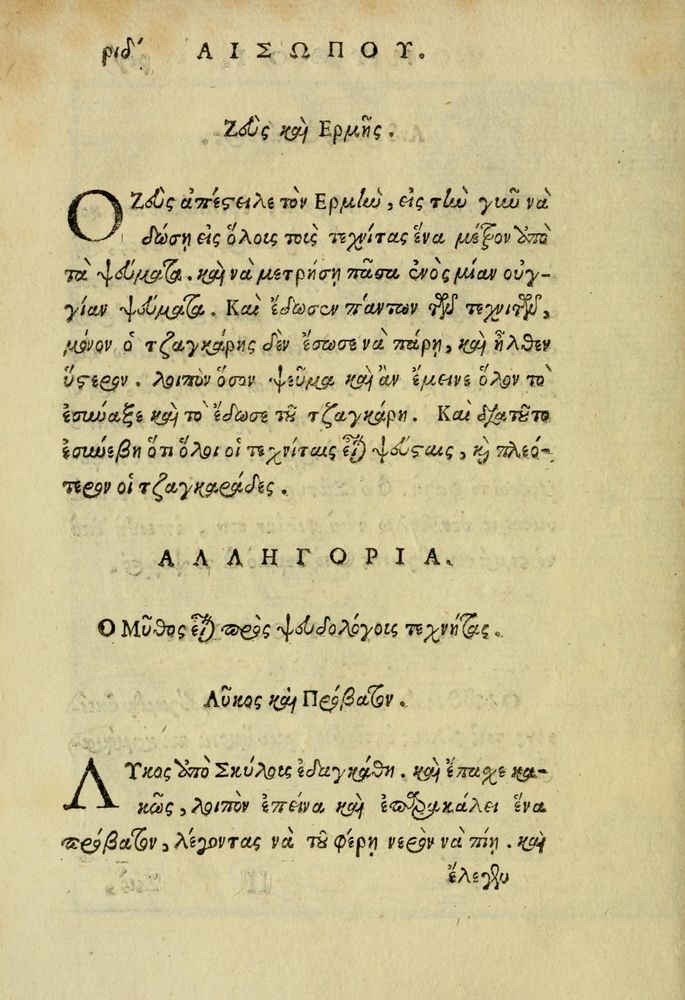 ριδʹ ΑΙΣΩΠΟΥ.
Ζεὺς καὶ Ερμῆς.
Ο Ζεὺς ἀπέστειλε τὸν Ερμὴν, εἰς τὴν γὴν νὰ
δώσῃ εἰς ὅλοις τοὶς τεχνίτας ἕνα μέζον ἀπὸ
τὰ ψεύματα. καὶ νὰ μετρήσῃ πᾶσα ἑνὸς μίαν οὐγ-
γίαν ψεύματα. Καὶ ἔδωσεν πάντων τῶν τεχνιτῶν,
μόνον ὁ τζαγκάρης δὲν ἔσωσε νὰ πάρῃ, καὶ ἦλθεν
ὕστερον. λοιπὸν ὅσον ψεῦμα καὶ ἂν ἔμεινε ὅλον τὸ
ἐσύναξε καὶ τὸ ἔδωσε τοῦ τζαγκάρη. Καὶ διατοῦτο
ἐσυνέβη ὅτι ὅλοι οἱ τεχνίταις εἶναι ψεύσταις, καὶ πλεό-
τερον οἱ τζαγκαράδες.
ΑΛΛΗΓΟΡΙΑ.
Ο Μῦθος εἶναι πρὸς ψευδολόγοις τεχνήτας.
Λῦκος καὶ Πρόβατον.
Λύκος ἀπὸ Σκύλοις ἐδαγκάθη. καὶ ἔπαχε κα-
κῶς, λοιπὸν ἐπείνα καὶ ἐπαρακάλει ἕνα
πρόβατον, λέγοντας νὰ τοῦ φέρῃ νερὸν νὰ πίῃ. καὶ
ἔλεγεν